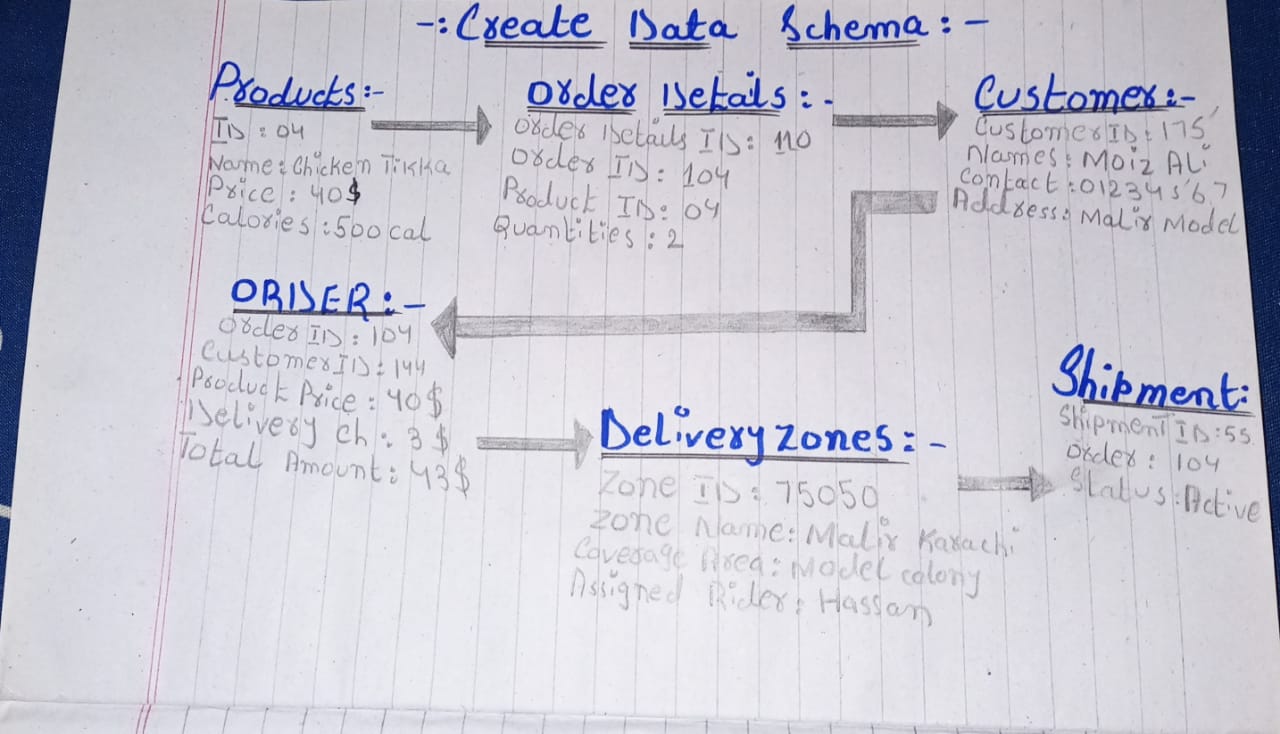 -: Create Data Schema :-
Products :-
ID : 04
Name : Chicken Tikka
Price : 40$
Calories : 500 cal
Order Details : -
Order Details ID : 110
Order ID : 104
Product ID : 04
Quantities : 2
Customer :-
Customer ID : 175
Names : Moiz Ali
Contact : 01234567
Address : Malir Model
ORDER :-
Order ID : 104
Customer ID : 144
Product Price : 40$
Delivery Ch : 3$
Total Amount : 43$
Delivery zones : -
Zone ID : 75050
Zone Name : Malir Karachi
Coverage Area : Model colony
Assigned Rider : Hassan
Shipment :
Shipment ID : 55
Order : 104
Status : Active